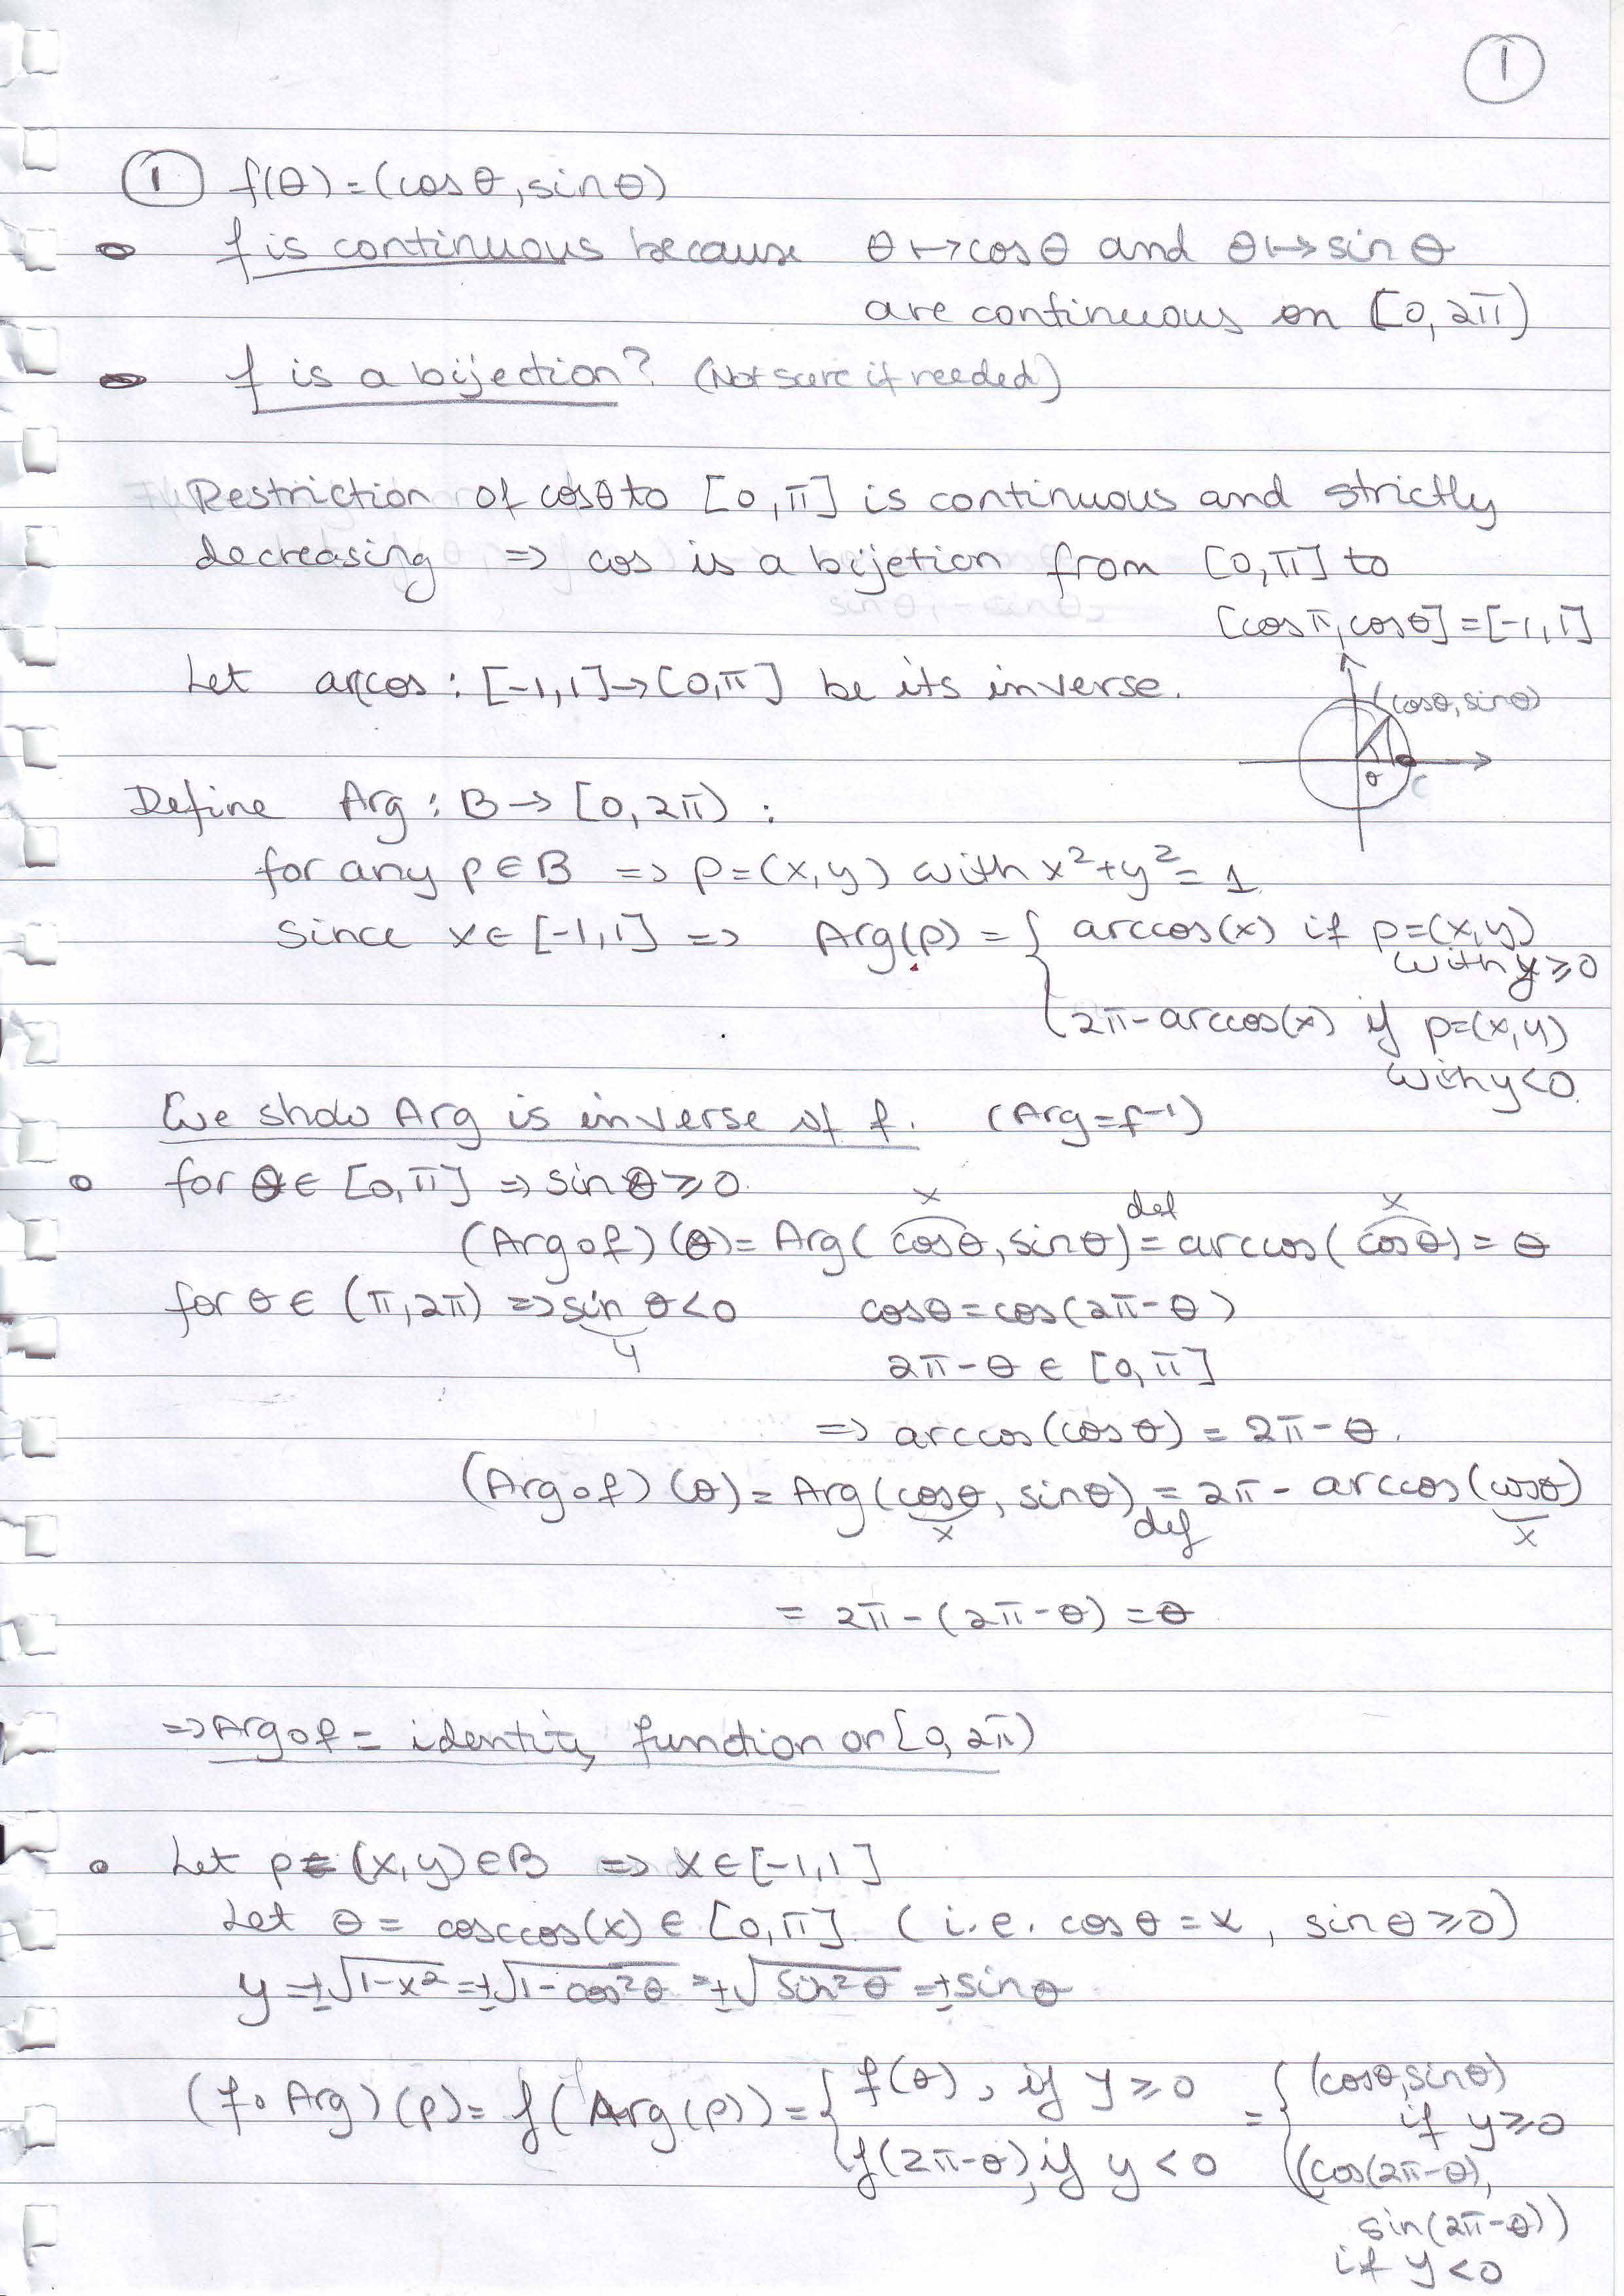 1
1 f(θ)=(cosθ,sinθ)
f is continuous because θ↦cosθ and θ↦sinθ
are continuous on [0,2π)
f is a bijection? (Not sure if needed)
Restriction of cosθ to [0,π] is continuous and strictly
decreasing => cos is a bijetion from [0,π] to
[cosπ,cosθ]=[-1,1]
Let arccos: [-1,1]→[0,π] be its inverse.
(cosθ,sinθ)
θ
C
Define Arg: B→[0,2π) :
for any p∈B => p=(x,y) with x²+y²=1
since x∈[-1,1] => Arg(p) = { arccos(x) if p=(x,y)
with y≥0
2π-arccos(x) if p=(x,y)
with y<0.
We show Arg is inverse of f. (Arg=f⁻¹)
for θ∈[0,π] => sinθ≥0.
x def x
(Arg∘f)(θ)=Arg(cosθ,sinθ)=arccos(cosθ)=θ
for θ∈(π,2π) => sinθ<0 cosθ=cos(2π-θ)
y
2π-θ∈[0,π]
=> arccos(cosθ)=2π-θ.
(Arg∘f)(θ)=Arg(cosθ,sinθ)=2π-arccos(cosθ)
x def x
=2π-(2π-θ)=θ
=> Arg∘f = identity function on [0,2π)
Let p=(x,y)∈B => x∈[-1,1]
Let θ= cosccos(x)∈[0,π]. (i.e. cosθ=x, sinθ≥0)
y=±√1-x²=±√1-cos²θ=±√sin²θ=±sinθ
(f∘Arg)(p)=f(Arg(p))={ f(θ), if y≥0 = { (cosθ,sinθ)
if y≥0
f(2π-θ), if y<0
(cos(2π-θ),
sin(2π-θ))
if y<0